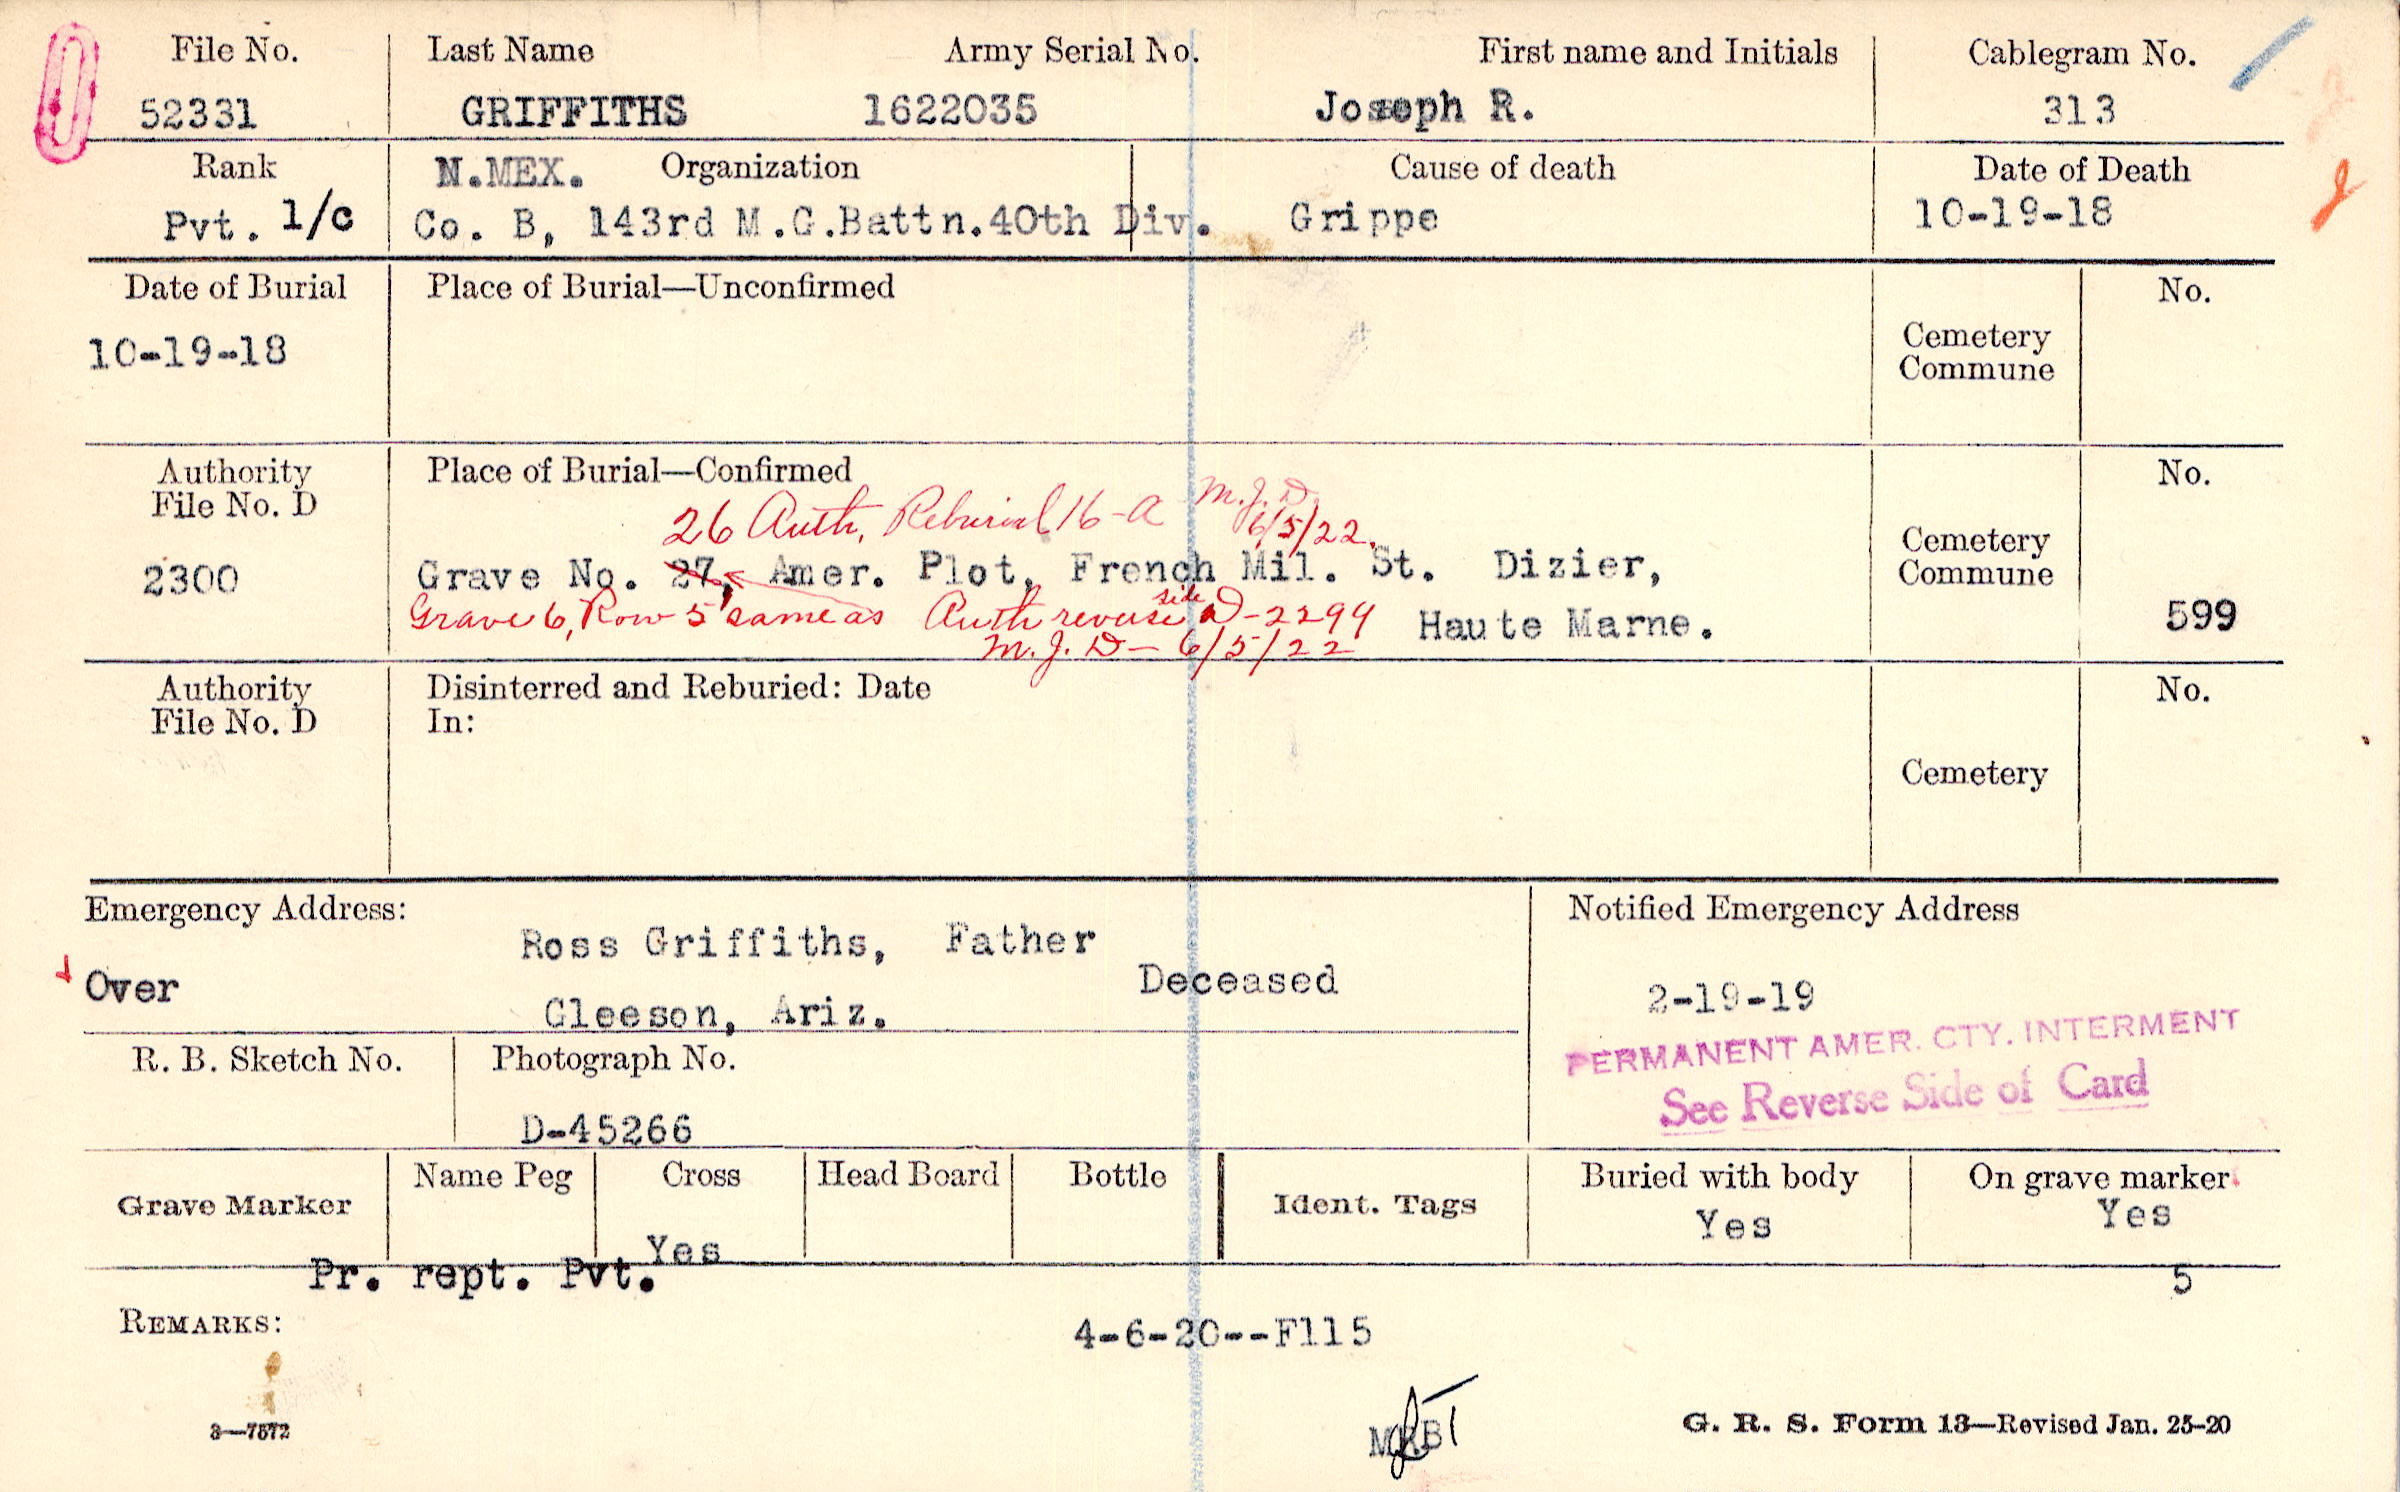 File No. Last Name Army Serial No. First name and Initials Cablegram No.
52331 GRIFFITHS 1622035 Joseph R. 313
Rank N.MEX. Organization Cause of death Date of Death
Pvt. 1/c Co. B, 143rd M.G.Battn.40th Div. Grippe 10-19-18
Date of Burial Place of Burial—Unconfirmed No.
10-19-18
Cemetery
Commune
Authority Place of Burial—Confirmed No.
File No. D
26 Auth. Reburial 16-A M.J.D. 6/5/22.
2300 Grave No. 27, Amer. Plot, French Mil. St. Dizier,
Cemetery
Commune
Grave 6, Row 5 same as Auth reverse side D-2294 Haute Marne. 599
M.J.D— 6/5/22
Authority Disinterred and Reburied: Date No.
File No. D In:
Cemetery
Emergency Address: Notified Emergency Address
Ross Griffiths, Father
Over Deceased 2-19-19
Gleeson, Ariz.
PERMANENT AMER. CTY. INTERMENT
See Reverse Side of Card
R. B. Sketch No. Photograph No.
D-45266
Grave Marker Name Peg Cross Head Board Bottle Ident. Tags Buried with body On grave marker
Yes Yes Yes
Pr. rept. Pvt. 5
REMARKS: 4-6-20--F115
3—7572 G. R. S. Form 13—Revised Jan. 25-20